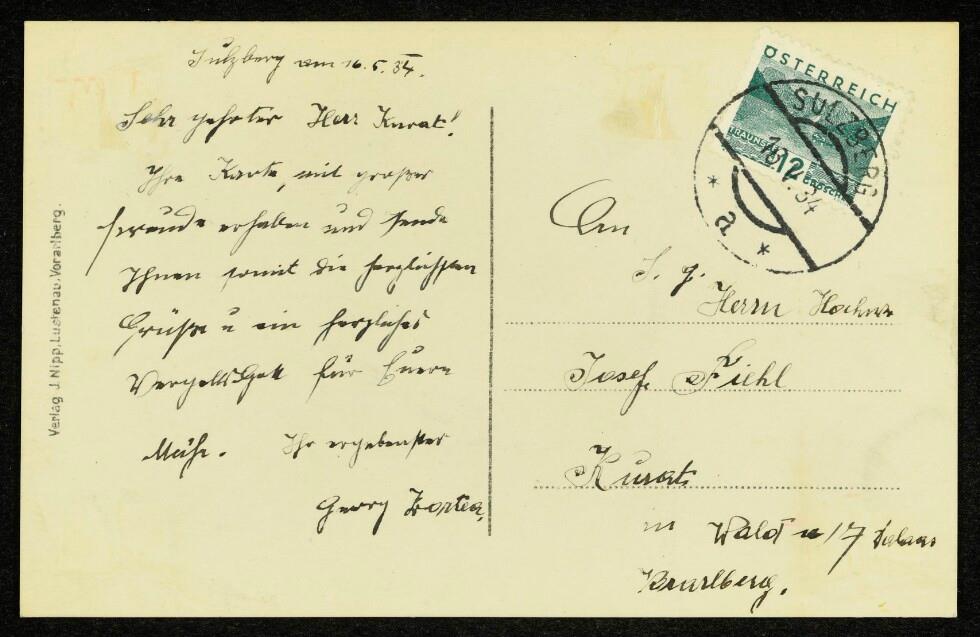 Sulzberg am 16.5.34.
Sehr geehrter Herr Kurat!
Ihre Karte, mit großer
Freude erhalten und sende
Ihnen somit die herzlichsten
Grüße u ein herzliches
Vergelts Gott für Euere
Mühe. Ihr ergebenster
Georg
Verlag J. Nipp, Lustenau, Vorarlberg.
ÖSTERREICH
12 GROSCHEN
SULZBERG
34
a
An
S. g.
Herrn Hochw
Josef Fiehl
Kurat
in Wald